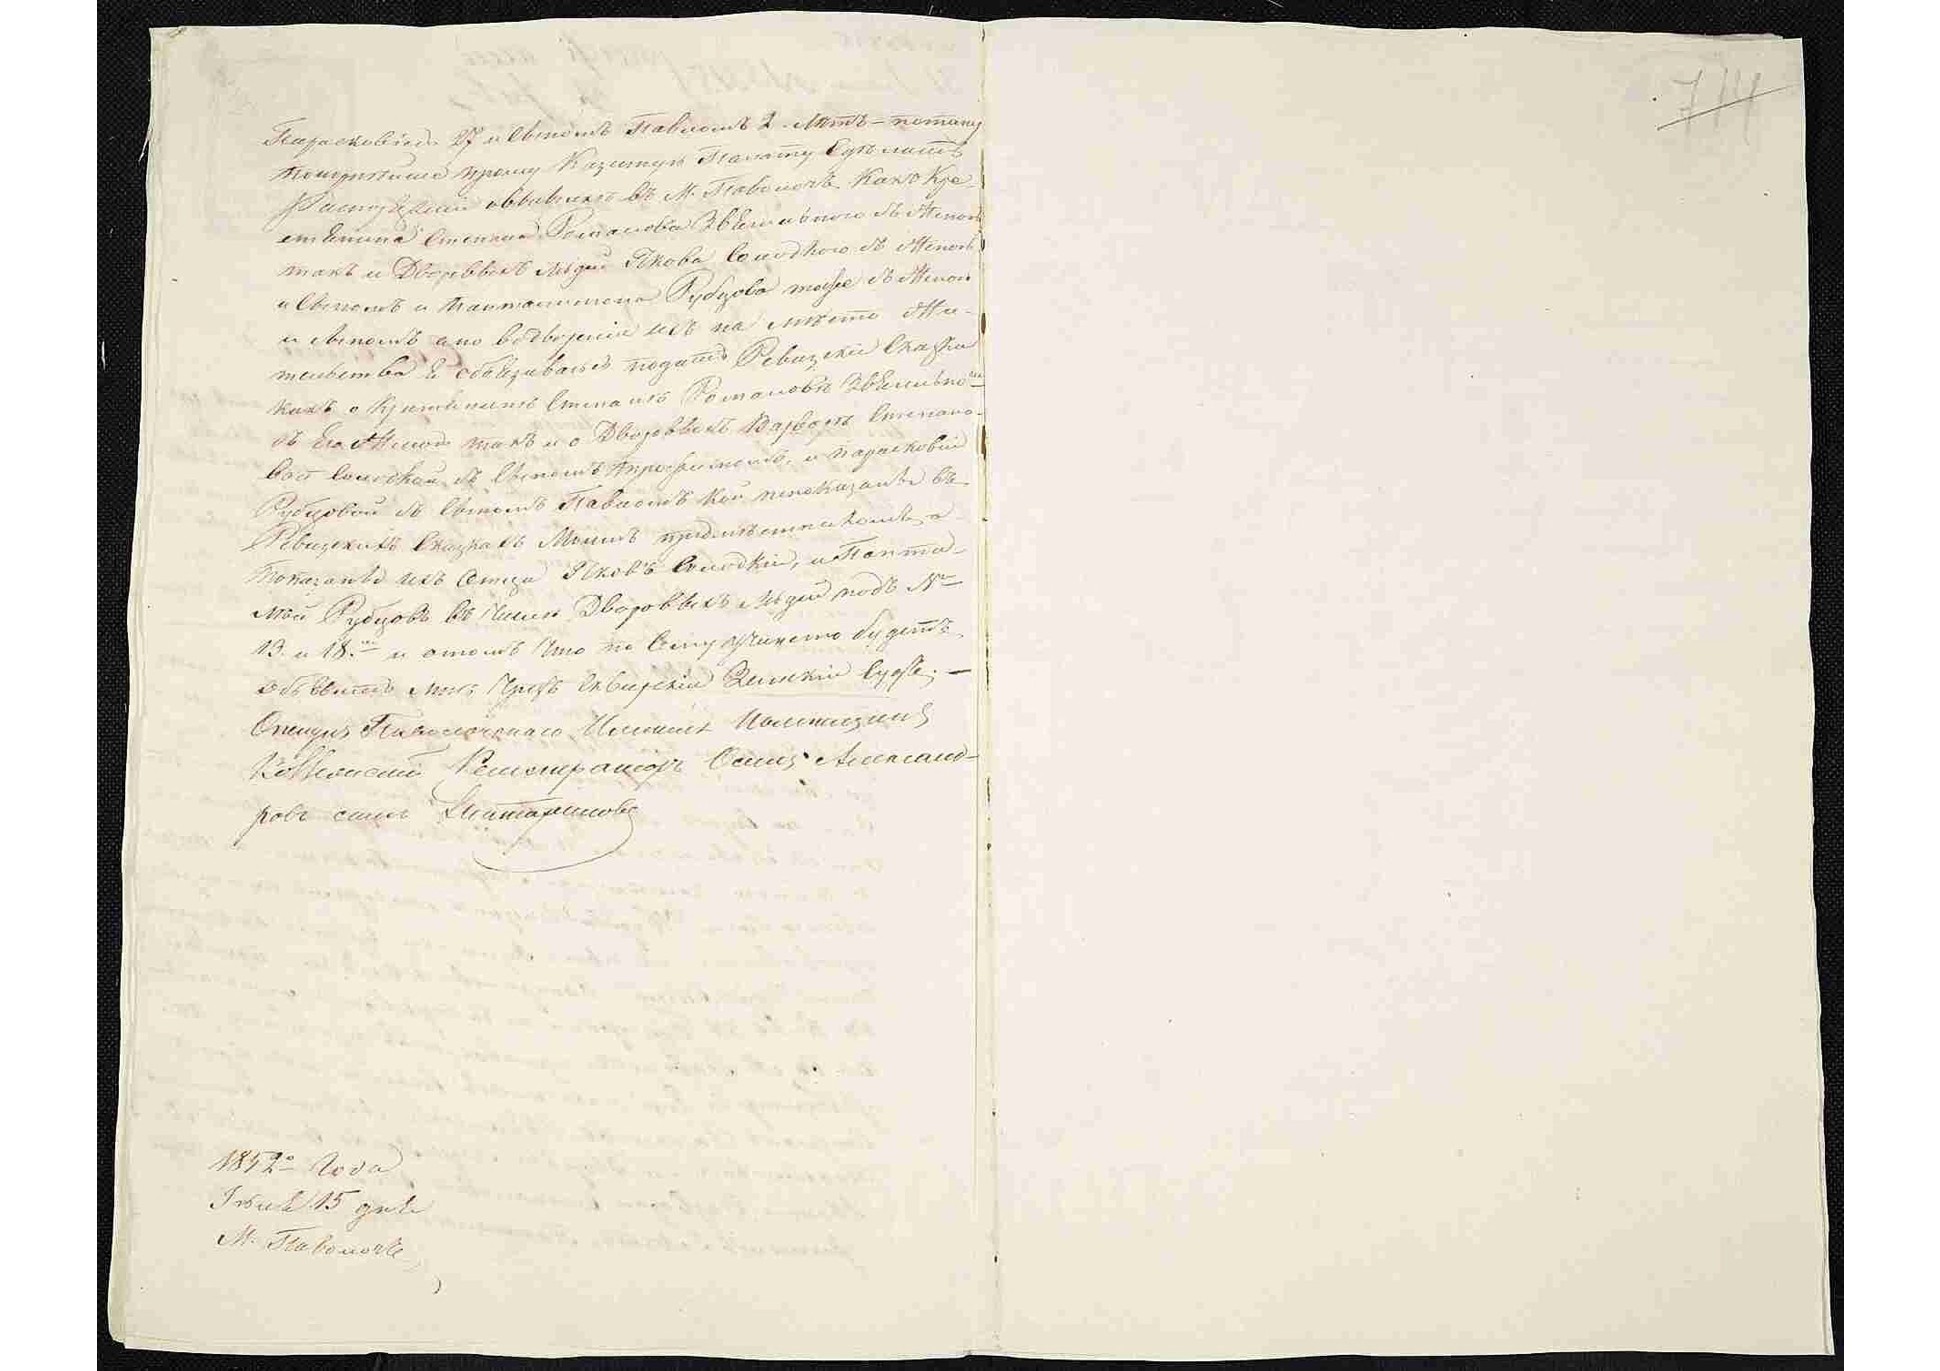 714
Парасковіею 27 и сыномъ Павломъ 2 лѣтъ – потому
покорнѣйше прошу Казенную Палату сдѣлать
распоряженіе въ М. Паволочь Какъ Кре-
стьянина Степана Романова съ женою
такъ и Дворовыхъ людей Якова Солодкого съ женою
и сыномъ и Пантелимона Рубцова тоже съ женою
и сыномъ а по водвореніи ихъ на мѣсто Жи-
тельства Я обязываюсь подать Ревизскіе Сказки
какъ о крестьянинѣ Степанѣ Романовѣ
съ Его Женою такъ и о Дворовыхъ Варварѣ Степано-
вой Солодкой съ сыномъ Трофимомъ, и Парасковіи
Рубцовой съ сыномъ Павломъ кои непоказаны въ
Ревизскихъ Сказкахъ Моимъ предмѣстникомъ а
показаны ихъ отцы Яковъ Солодкій, и Панте-
лей Рубцовъ въ числѣ Дворовыхъ людей подъ №
13. и 18. и о томъ что по Сему учинено будетъ
объявить мнѣ чрезъ Сквирскій Земскій Судъ. –
Опекунъ Паволочскаго Имѣнія
Коллежскій Регистраторъ Осипъ Александ-
ровъ сынъ
1852 Года
Іюня 15 дня
М. Паволочь